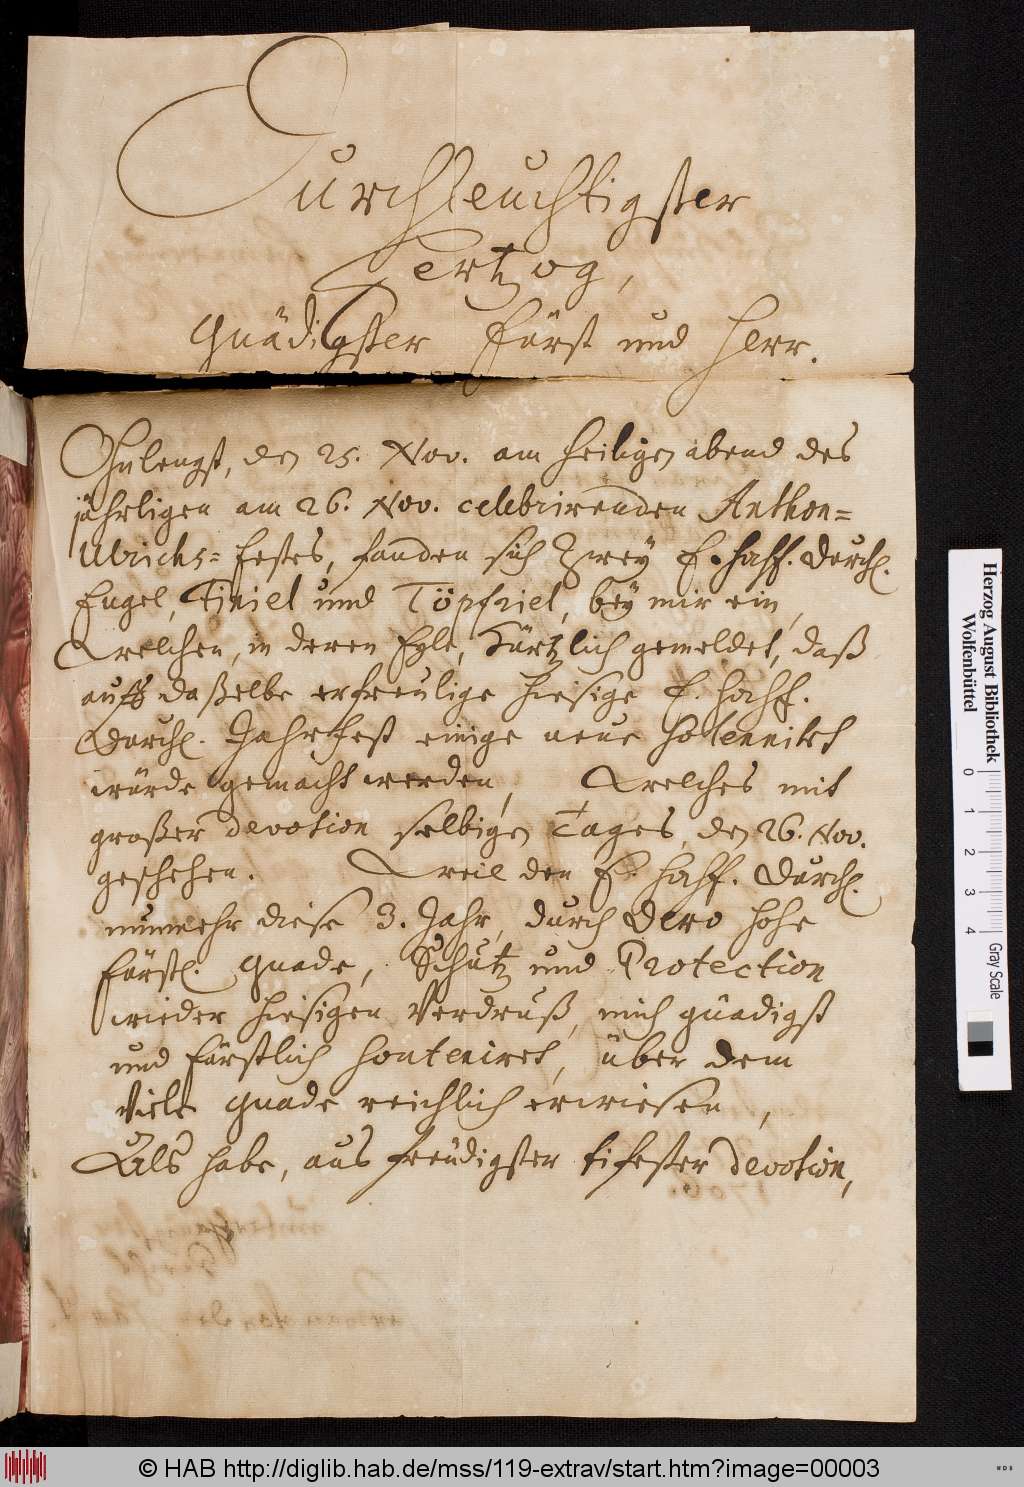 Durchleuchtigster
Hertzog,
Gnädigster Fürst und Herr.
Ohnlengst, den 25. Nov. am heiligen abend des
jährligen am 26. Nov. celebrirenden Anthon=
Ulrichs= festes, fanden sich zwey E. Hochf. Durchl.
Engel, Tiriel und Töpfriel, bey mir ein,
Welchen, in deren Eyle, kürtzlich gemeldet, daß
auff daßelbe erfreulige hiesige E. Hochf.
Durchl. Jahrfest einige neue Solennitet
würde gemacht werden, Welches mit
großer devotion selbigen Tages, den 26. Nov.
geschehen. Weil den E. Hochf. Durchl.
nunmehr diese 3. Jahr, durch Dero hohe
Fürstl. Gnade, Schutz und Protection
wieder hiesigen Verdruß, mich gnädigst
und Fürstlich souteniret, über dem
Viele Gnade reichlich erwiesen,
Als habe, aus freüdigster tifester devotion,
© HAB http://diglib.hab.de/mss/119-extrav/start.htm?image=00003
Herzog August Bibliothek
Wolfenbüttel
0 1 2 3 4
Gray Scale